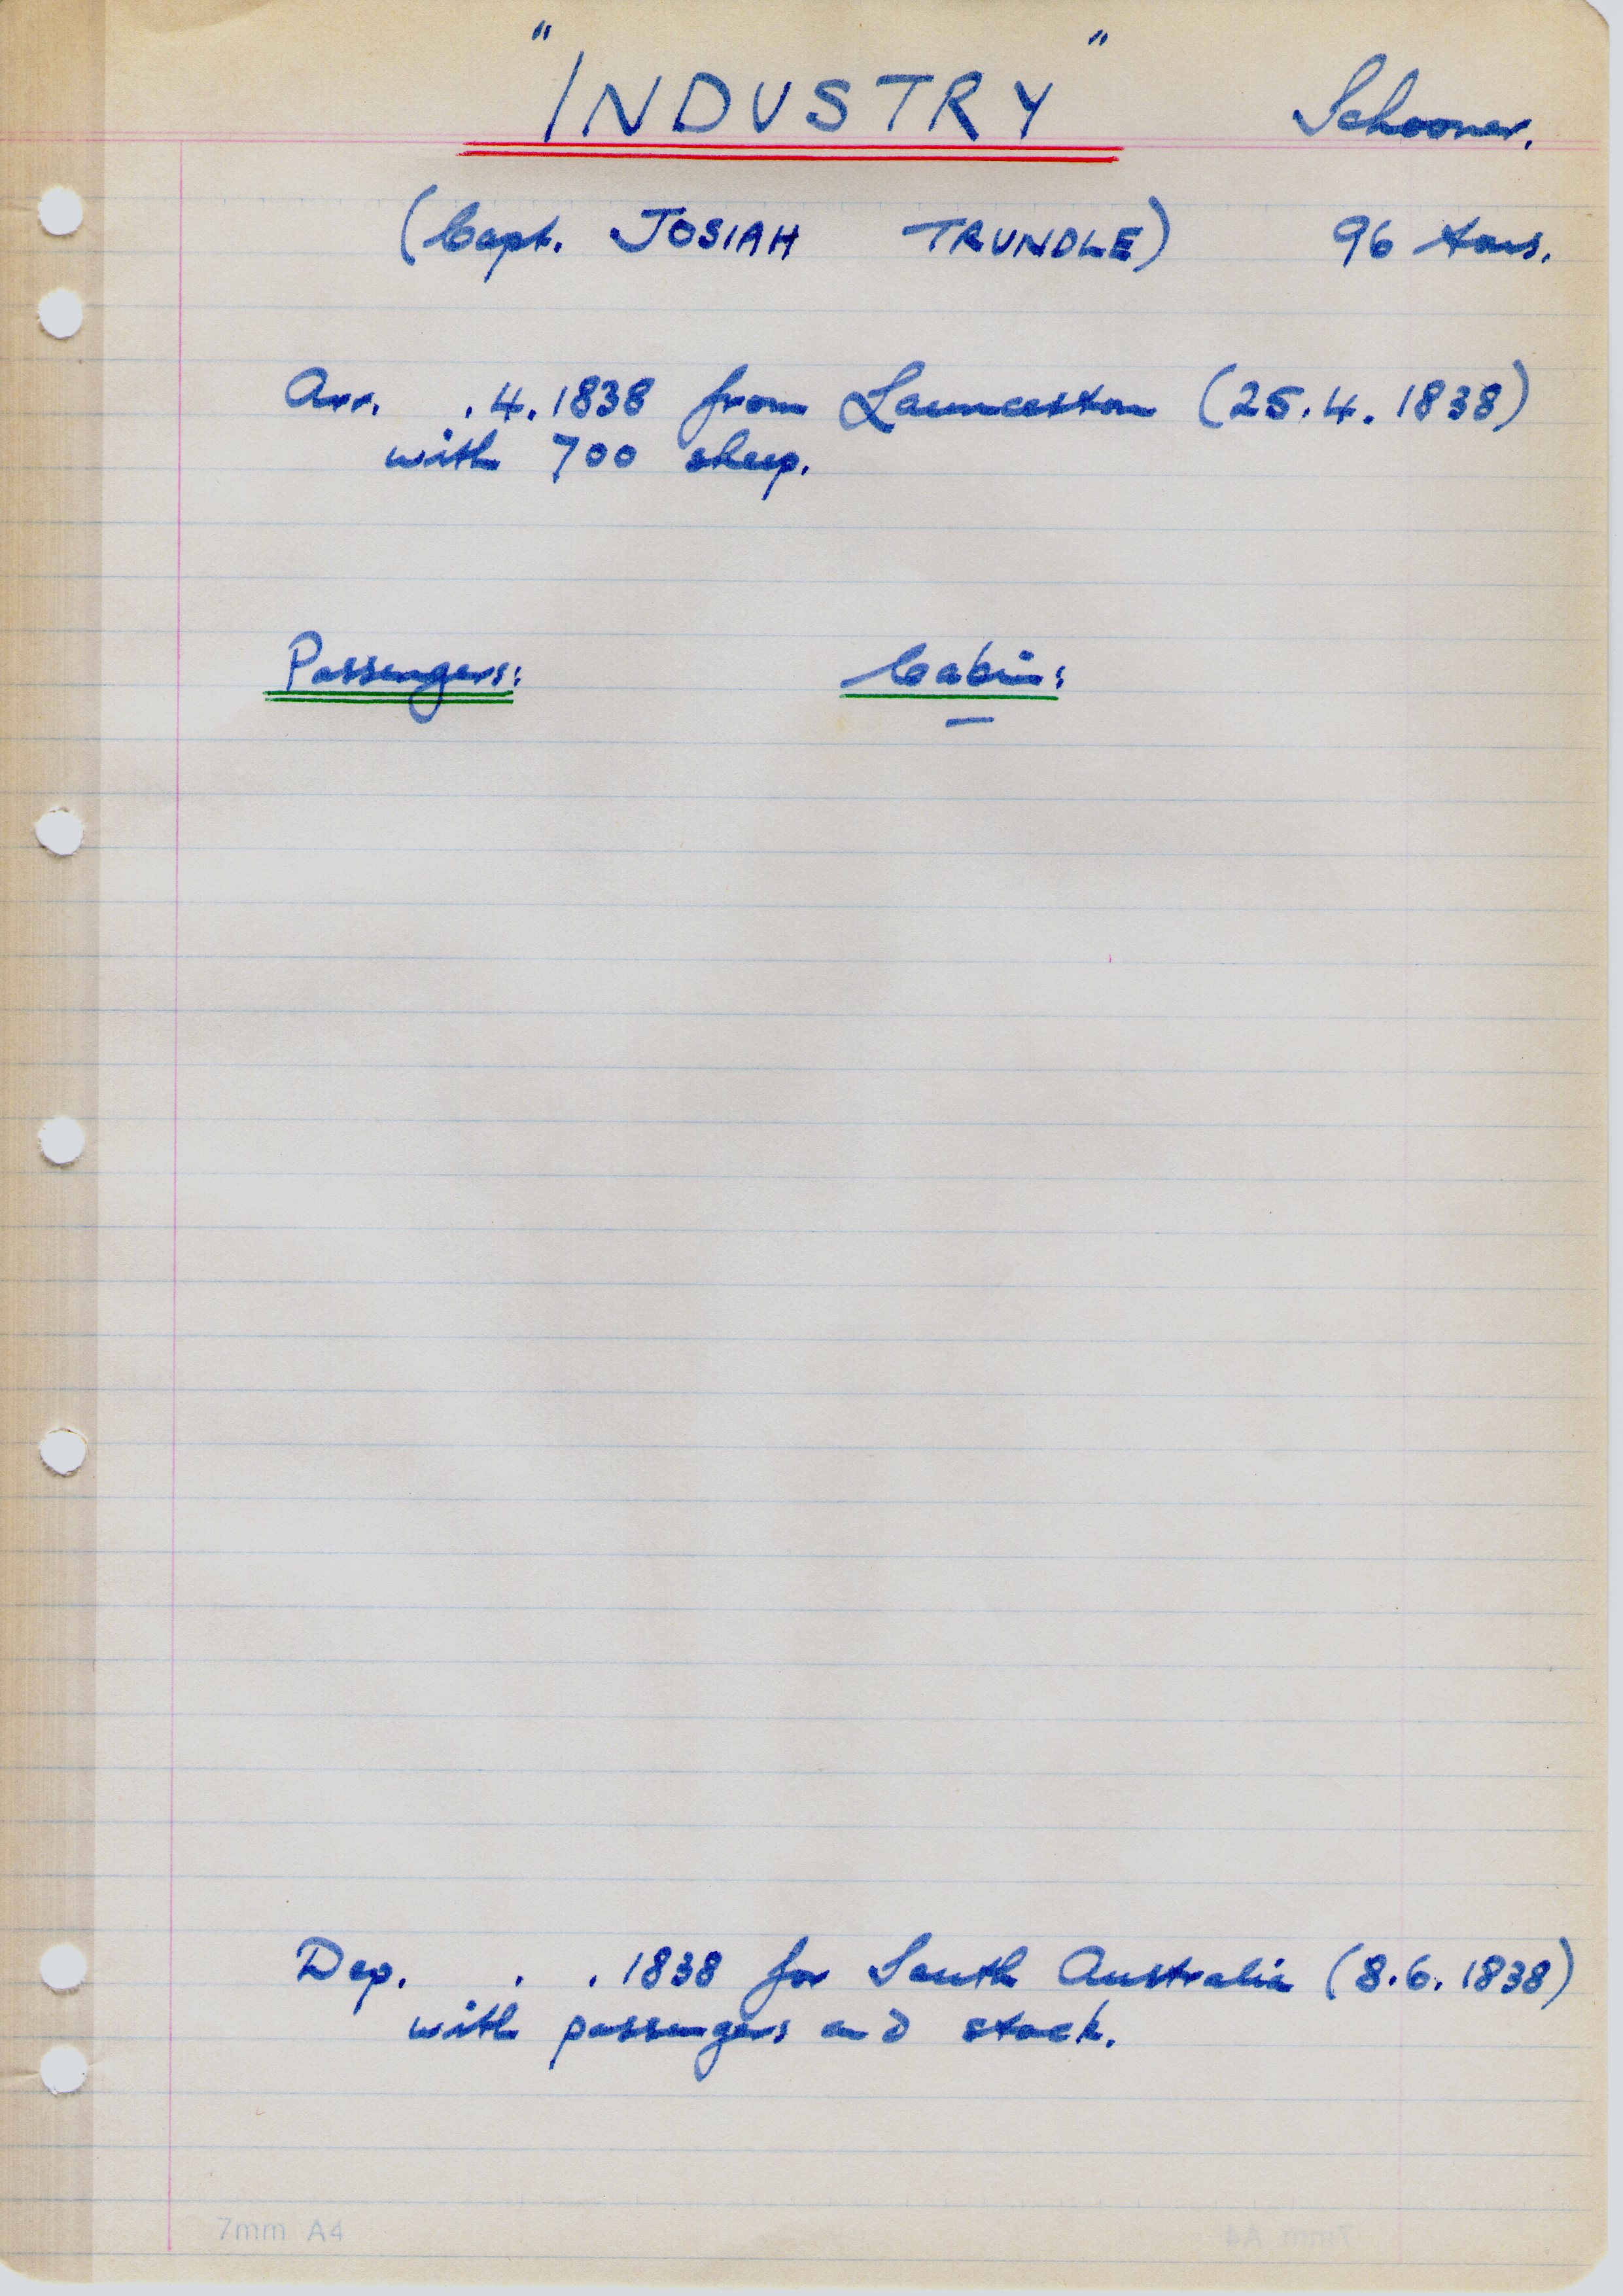 "INDUSTRY" Schooner.
(Capt. JOSIAH TRUNDLE) 96 tons.
Arr. .4.1838 from Launceston (25.4.1838)
with 700 sheep.
Passengers: Cabin:
—
Dep. . .1838 for South Australia (8.6.1838)
with passengers and stock.
7mm A4